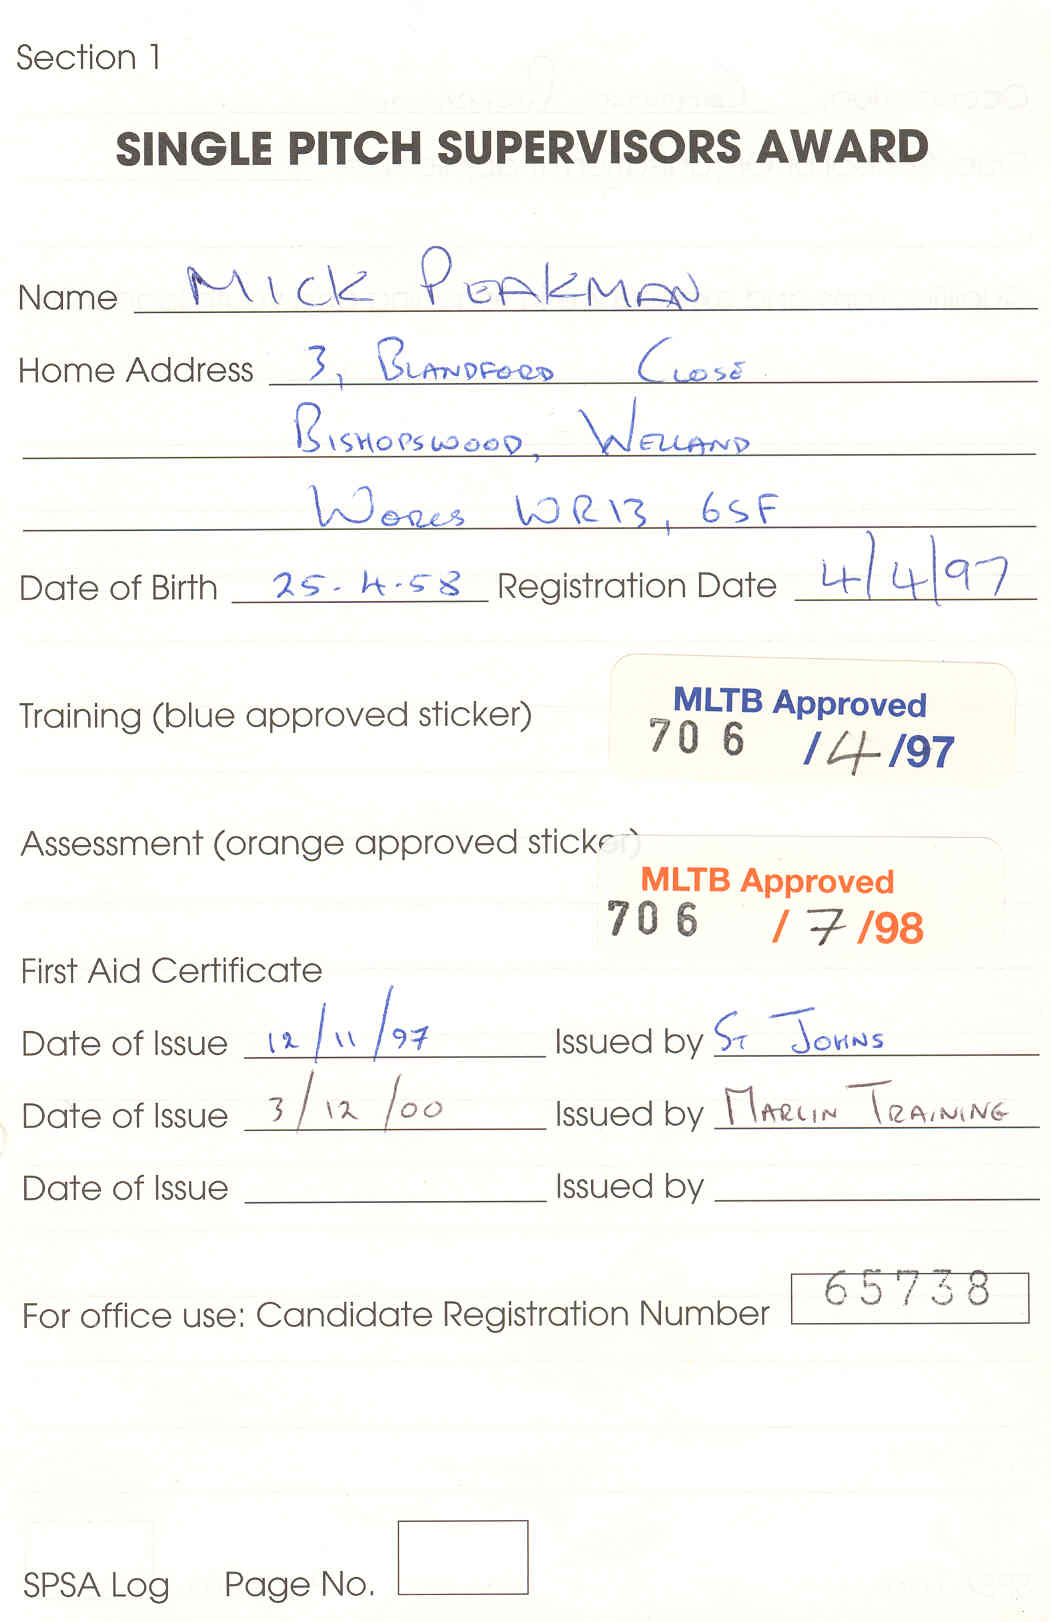 Section 1
SINGLE PITCH SUPERVISORS AWARD
Name MICK PEAKMAN
Home Address 3, BLANDFORD CLOSE
BISHOPSWOOD, WELLAND
WORCS WR13, 6SF
Date of Birth 25-4-58 Registration Date 4/4/97
Training (blue approved sticker)
MLTB Approved
706 /4/97
Assessment (orange approved sticker)
MLTB Approved
706 /7/98
First Aid Certificate
Date of Issue 12/11/97 Issued by ST JOHNS
Date of Issue 3/12/00 Issued by MARLIN TRAINING
Date of Issue Issued by
For office use: Candidate Registration Number 65738
SPSA Log Page No.